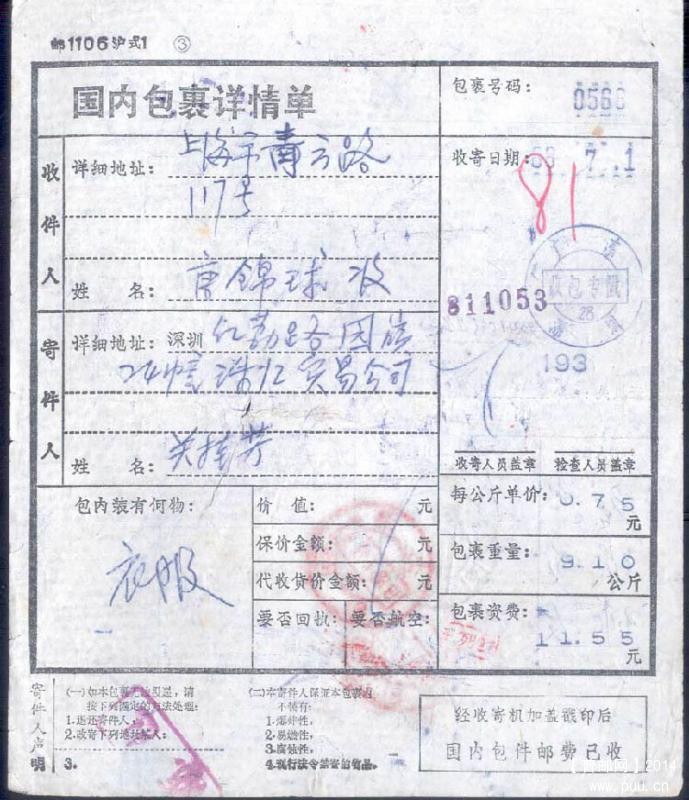 邮1106沪式1 ③
国内包裹详情单
包裹号码：
0566
收件人
详细地址：上海市青云路
117号
姓 名：唐锦球 收
收寄日期：
7.1
81
收包专戳
28
811053
193
寄件人
详细地址：深圳 红荔路园岭
贸易公司
姓 名：关桂芳
收寄人员盖章 检查人员盖章
包内装有何物：
衣服
价 值： 元
保价金额： 元
代收货价金额： 元
要否回执： 要否航空：
每公斤单价：0.75元
包裹重量：9.10公斤
包裹资费：11.55元
寄件人声明
(一)如本包裹无法投递，请
按下列指定的方法处理：
1.退还寄件人；
2.改寄下列地址某人：
3.
(二)本寄件人保证本包裹内
不装有：
1.爆炸性，
2.易燃性，
3.腐蚀性，
4.现行法令禁寄的物品。
经收寄机加盖戳印后
国内包件邮费已收
2014
www.puu.cn